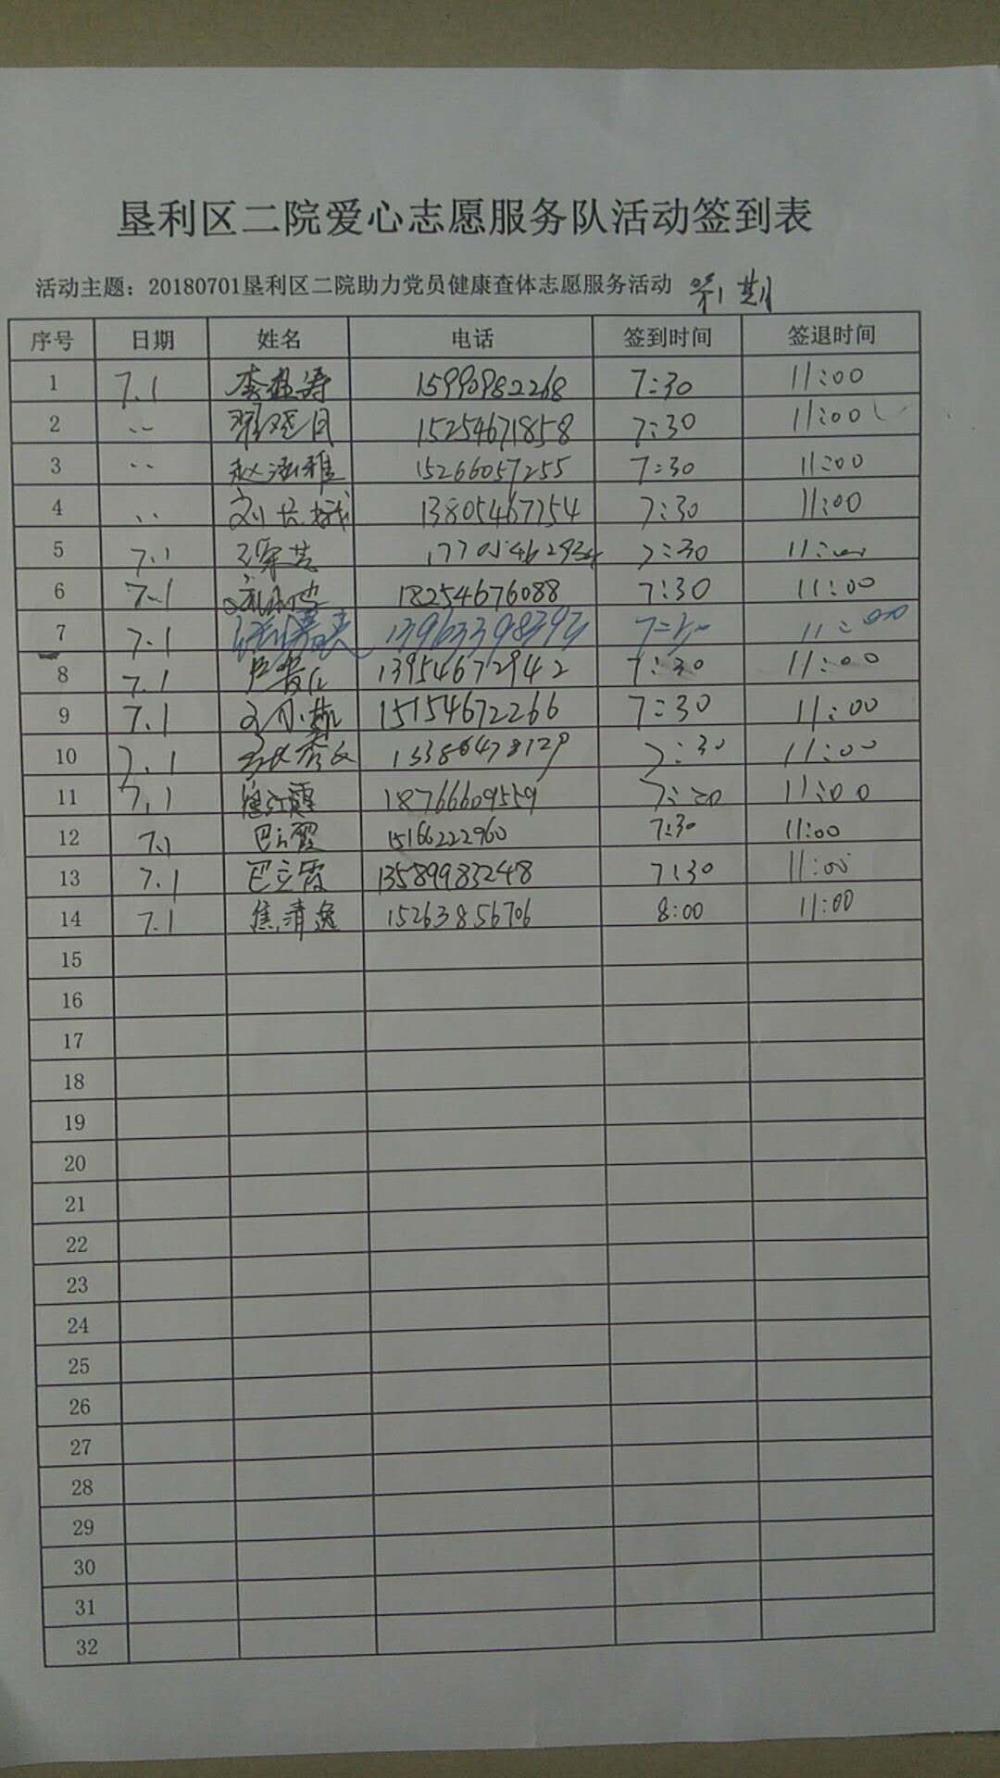 垦利区二院爱心志愿服务队活动签到表
活动主题：20180701垦利区二院助力党员健康查体志愿服务活动 第1期
序号 日期 姓名 电话 签到时间 签退时间
1 7.1 15990982268 7:30 11:00
2 .. 15254671858 7:30 11:00
3 .. 15266057255 7:30 11:00
4 .. 13805467754 7:30 11:00
5 7.1 7:30 11:00
6 7.1 18254676088 7:30 11:00
7 7.1 11:00
8 7.1 13954672942 7:30 11:00
9 7.1 15154672266 7:30 11:00
10 7.1 7:30 11:00
11 7.1 18766609559 11:00
12 7.1 15166222960 7:30 11:00
13 7.1 巴立霞 13589983248 7:30 11:00
14 7.1 焦清逸 15263856706 8:00 11:00
15
16
17
18
19
20
21
22
23
24
25
26
27
28
29
30
31
32